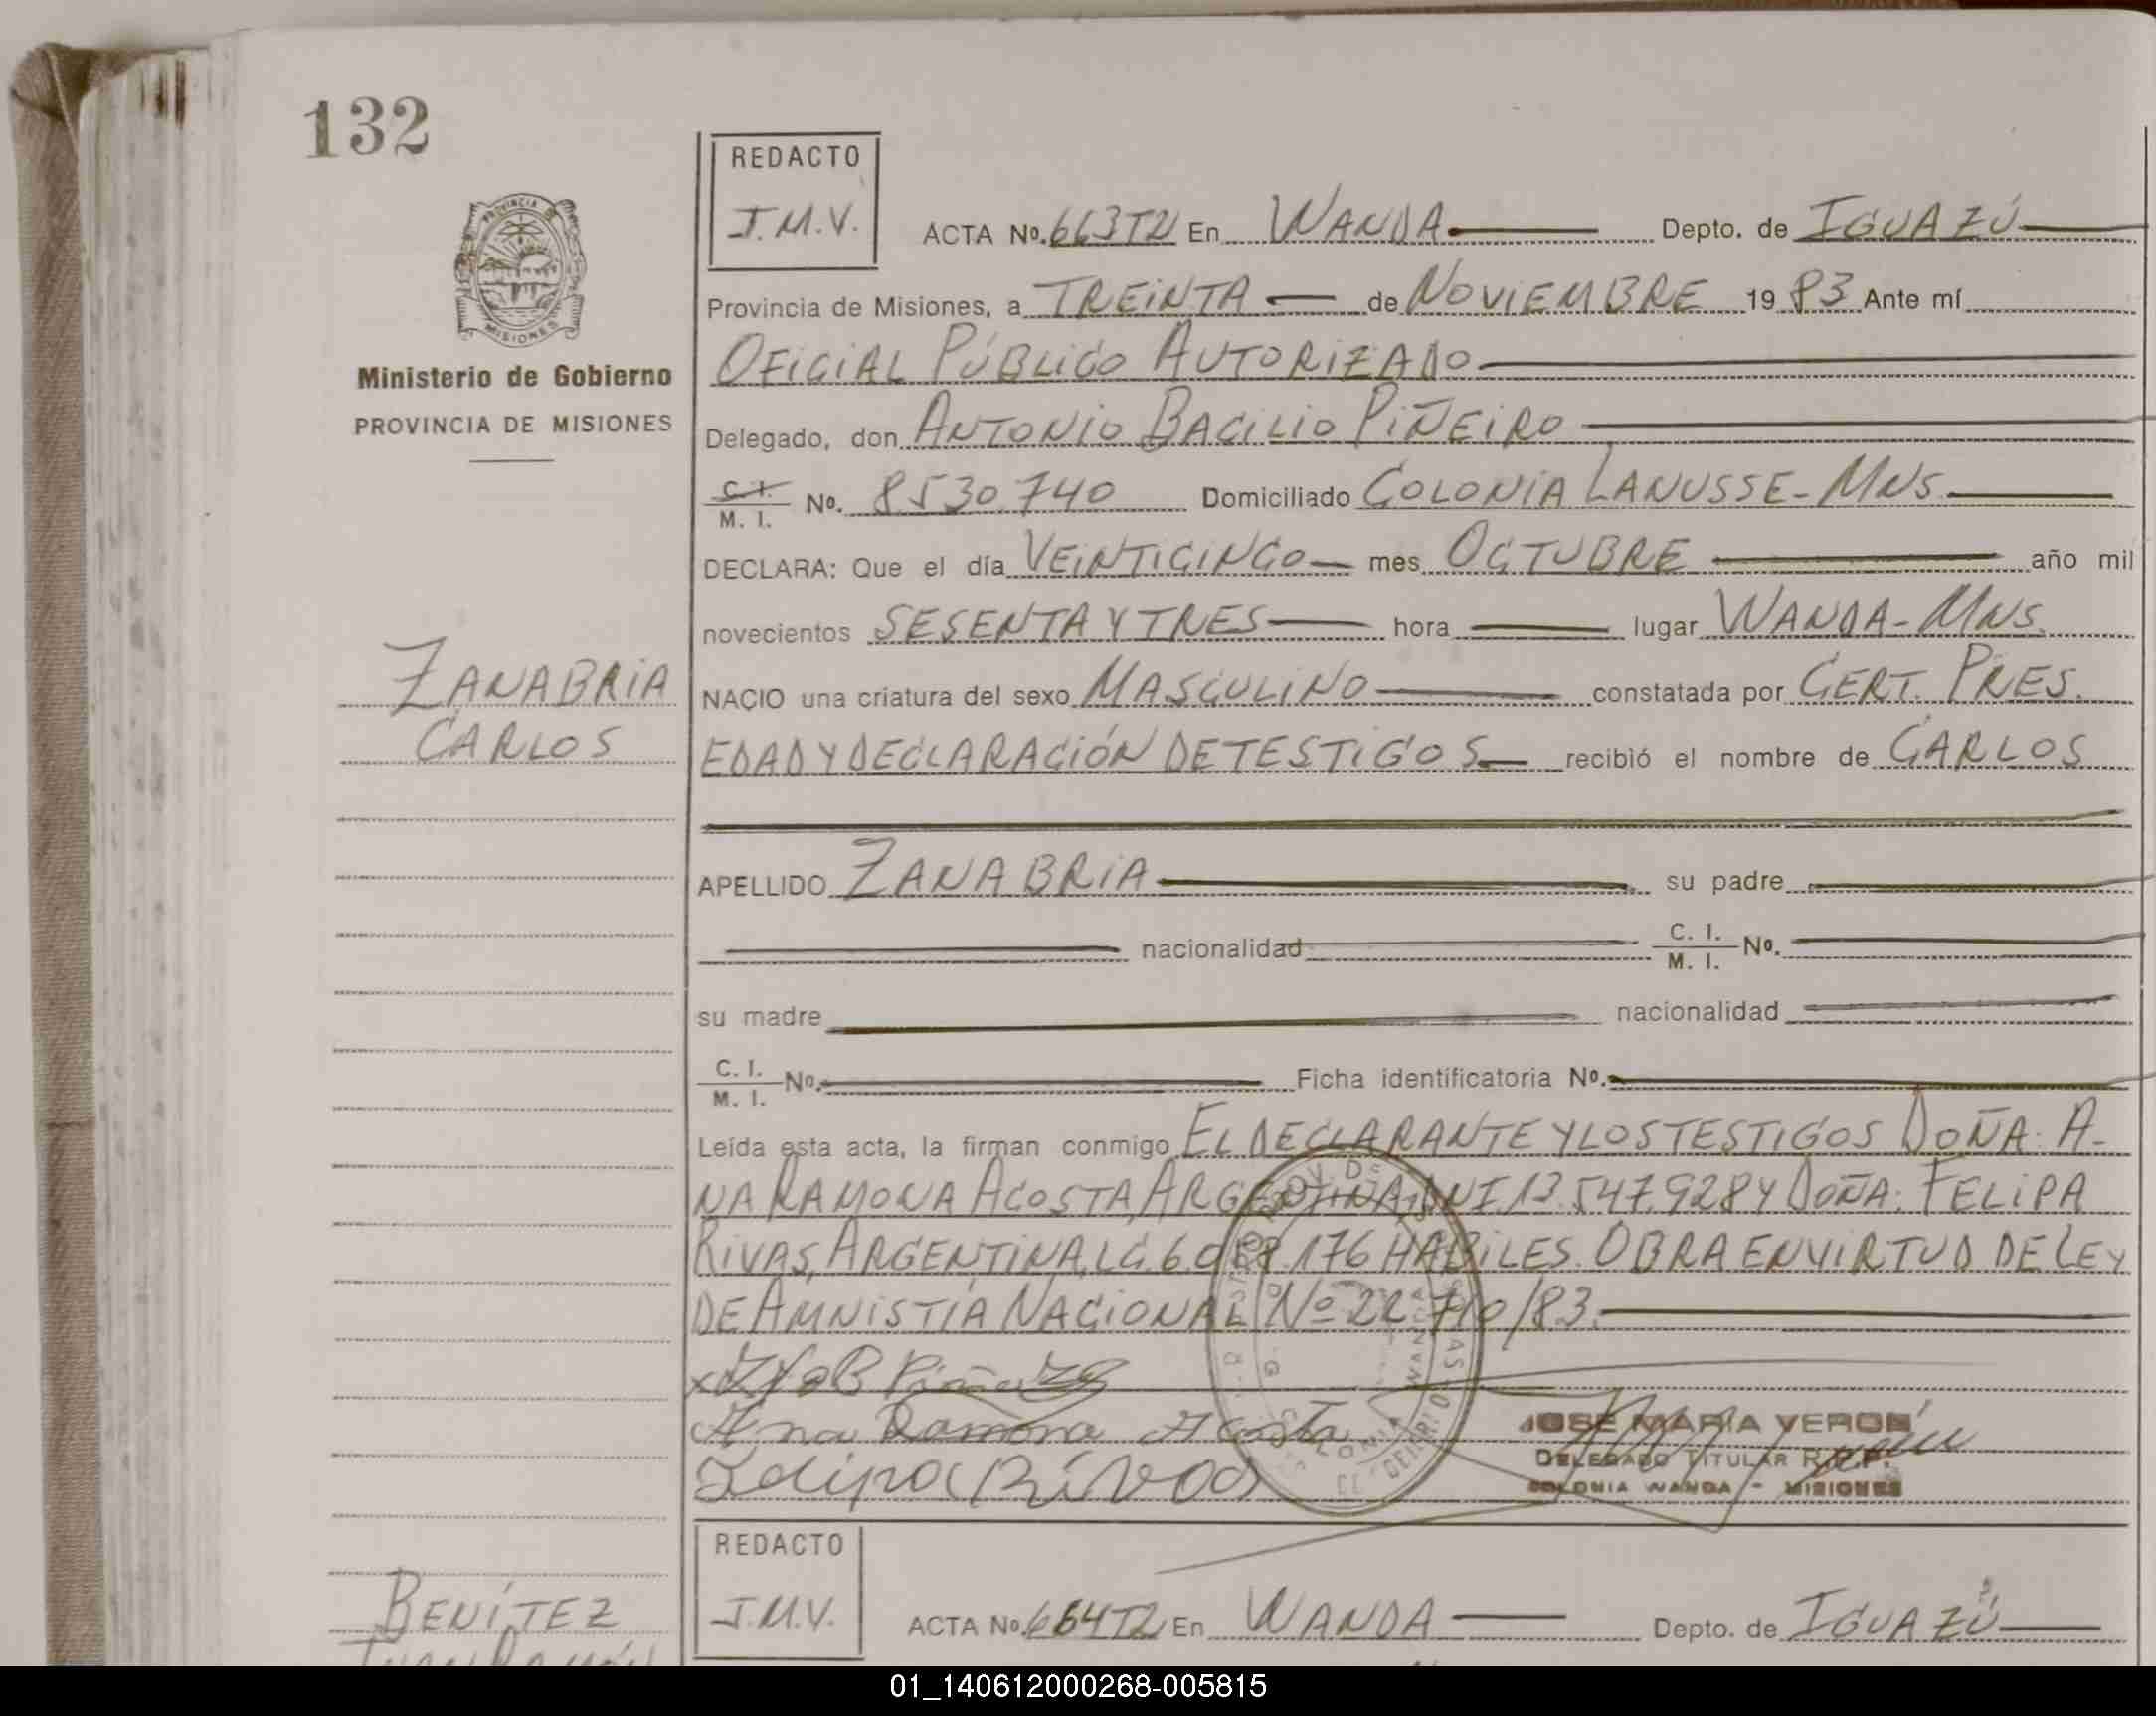 132
REDACTO
J.M.V.
ACTA Nº. 663T2 En WANDA Depto. de IGUAZÚ
PROVINCIA DE
MISIONES
Provincia de Misiones, a TREINTA de NOVIEMBRE 1983 Ante mí
Ministerio de Gobierno
OFICIAL PÚBLICO AUTORIZADO
PROVINCIA DE MISIONES
Delegado, don ANTONIO BACILIO PIÑEIRO
C. I. / M. I. Nº. 8.530.740 Domiciliado COLONIA LANUSSE-MNS.
DECLARA: Que el día VEINTICINCO mes OCTUBRE año mil
novecientos SESENTA Y TRES hora lugar WANDA-MNS.
ZANABRIA
CARLOS
NACIO una criatura del sexo MASCULINO constatada por CERT. PRES.
EDAD Y DECLARACIÓN DE TESTIGOS recibió el nombre de CARLOS
APELLIDO ZANABRIA su padre
nacionalidad C. I. / M. I. Nº.
su madre nacionalidad
C. I. / M. I. Nº. Ficha identificatoria Nº.
Leída esta acta, la firman conmigo EL DECLARANTE Y LOS TESTIGOS DOÑA: A-
NA RAMONA ACOSTA, ARGENTINA, DNI. 13.547.928 Y DOÑA: FELIPA
RIVAS, ARGENTINA, LC. 6.058.176 HABILES. OBRA EN VIRTUD DE LEY
DE AMNISTÍA NACIONAL Nº 22.710/83.
Ana Ramona Acosta
Felipa Rivas
JOSE MARIA VERON
DELEGADO TITULAR R.P.P.
COLONIA WANDA - MISIONES
REDACTO
J.M.V.
BENÍTEZ
JUAN RAMÓN
ACTA Nº. 664T2 En WANDA Depto. de IGUAZÚ
01_140612000268-005815